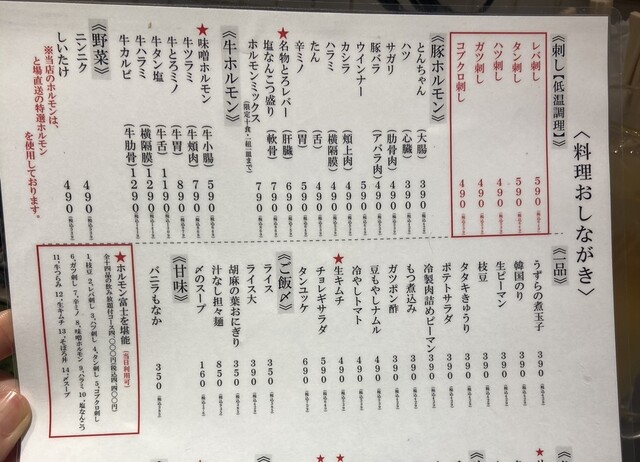 〈料理おしながき〉
《刺し【低温調理】》
レバ刺し 590
タン刺し 590
ハツ刺し 490
ガツ刺し 490
コブクロ刺し 490
《豚ホルモン》
とんちゃん(大腸) 390
ハツ(心臓) 390
サガリ(肋骨肉) 490
豚バラ(アバラ肉) 490
ウインナー 490
カシラ(頬上肉) 490
ハラミ(横隔膜) 490
たん(舌) 490
辛ミノ(胃) 590
★名物とろレバー(肝臓) 690
塩なんこつ盛り(軟骨) 790
ホルモンミックス(限定十食・一組一皿まで) 790
《牛ホルモン》
★味噌ホルモン(牛小腸) 590
牛ツラミ(牛頬肉) 790
牛とろミノ(牛胃) 890
牛タン塩(牛舌) 1190
牛ハラミ(横隔膜) 1290
牛カルビ(牛肋骨) 1290
《野菜》
ニンニク 490
しいたけ 490
※当店のホルモンは、
と場直送の特選ホルモン
を使用しております。
《一品》
うずらの煮玉子 390
韓国のり 390
生ピーマン 390
枝豆 390
タタキきゅうり 390
ポテトサラダ 390
冷製肉詰めピーマン 390
もつ煮込み 390
ガツポン酢 390
豆もやしナムル 490
冷やしトマト 490
★生キムチ 490
チョレギサラダ 590
タンユッケ 690
《ご飯〆》
ライス 350
ライス大 390
胡麻の葉おにぎり 350
汁なし担々麺 850
〆のスープ 160
《甘味》
バニラもなか 350
★ホルモン富士を堪能(当日利用可)
全十四品の飲み放題付コース四、〇〇〇円(税込四四〇〇円)
1、枝豆 2、レバ刺し 3、ハツ刺し 4、タン刺し 5、コブクロ刺し
6、ガツ刺し 7、辛ミノ 8、味噌ホルモン 9、ハラミ 10、塩なんこつ
11、牛つらみ 12、生キムチ 13、そぼろ丼 14、〆スープ